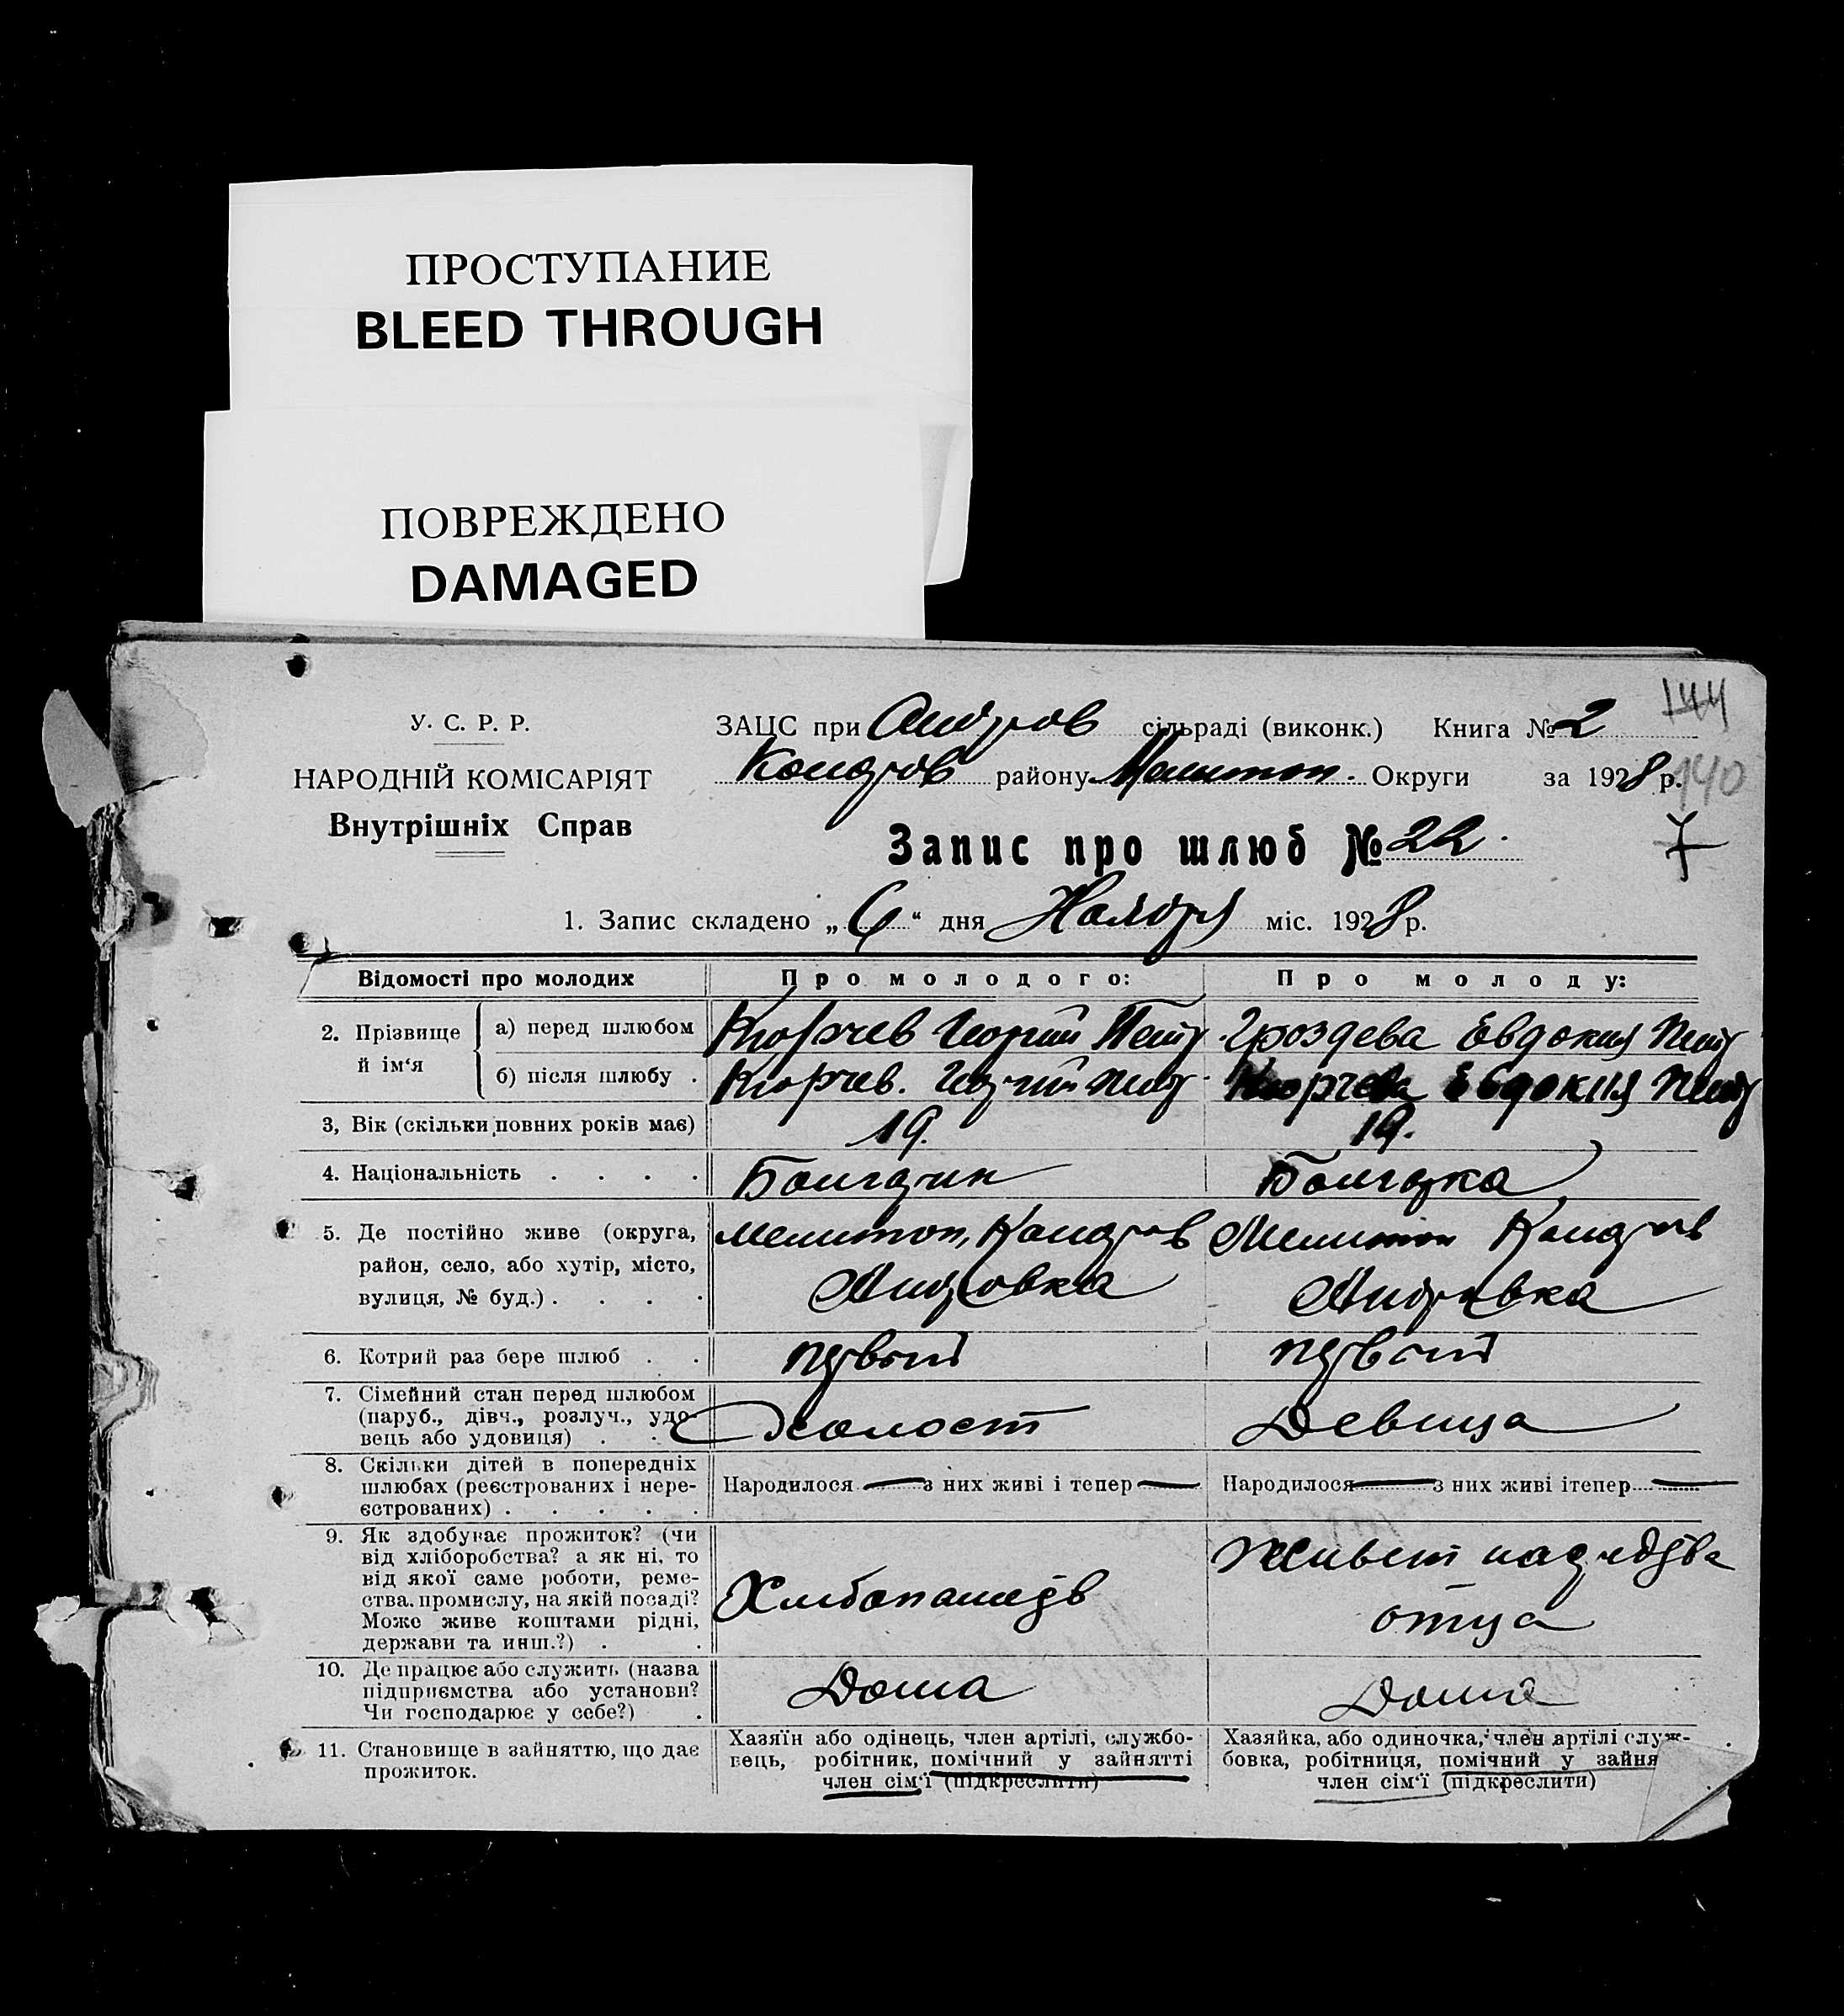 ПРОСТУПАНИЕ
BLEED THROUGH
ПОВРЕЖДЕНО
DAMAGED
144
У. С. Р. Р.
НАРОДНІЙ КОМІСАРІЯТ
Внутрішніх Справ
ЗАЦС при Андров сільраді (виконк.) Книга № 2
района Мелитоп. Округи за 1928 р.
140
Запис про шлюб № 22.
1. Запис складено „6“ дня Ноября міс. 1928 р.
Відомості про молодих Про молодого: Про молоду:
2. Прізвище й ім‘я
а) перед шлюбом Кюрчев Георгий Петр Гроздева Евдокия Петр
б) після шлюбу . Кюрчев. Георгий Петр Кюрчева Евдокия Петр
3, Вік (скільки повних років має) 19. 19.
4. Національність . . . . Болгарин Болгарка
5. Де постійно живе (округа,
район, село, або хутір, місто,
вулиця, № буд.) . . . .
Мелитоп, Кондров Мелитоп Кондров
Андровка Андровка
6. Котрий раз бере шлюб . . первый первый
7. Сімейний стан перед шлюбом
(паруб., дівч., розлуч., удо-
вець або удовиця) . .
Холост Девица
8. Скільки дітей в попередніх
шлюбах (реєстрованих і нере-
єстрованих) . . . . .
Народилося — з них живі і тепер — Народилося — з них живі ітепер —
9. Як здобуває прожиток? (чи
від хліборобства? а як ні, то
від якої саме роботи, реме-
ства, промислу, на якій посаді?
Може живе коштами рідні,
держави та инш.?) . .
Живет на
отца
10. Де працює або служить (назва
підприємства або установи?
Чи господарює у себе?) .
Дома Дома
11. Становище в зайняттю, що дає
прожиток.
Хазяїн або одінець, член артілі, службо-
вець, робітник, помічний у зайнятті
член сім‘ї (підкреслити)
Хазяйка, або одиночка, член артілі служ-
бовка, робітниця, помічний у зайня
член сім‘ї (підкреслити)